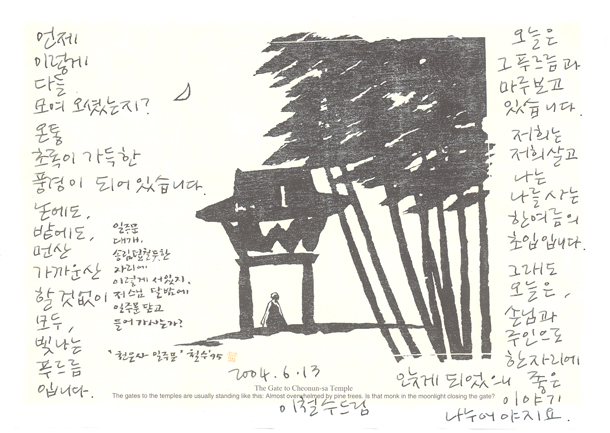 언제
이렇게
다들
모여 오셨는지?
온통
초록이 가득한
풍경이 되어있습니다.
논에도,
밭에도,
먼산
가까운산
할것없이
모두,
빛나는
푸르름
입니다.
일주문
대개,
송림 울련듯한
자리에
이렇게 서있지.
저스님 달밤에
일주문 닫고
들어가시는가?
"천은사 일주문" 철수 '95
오늘은
그 푸르름과
마주보고
있습니다.
저희는
저희살고
나는
나를 사는
한여름의
초입입니다.
그래도
오늘은,
손님과
주인으로
한자리에
앉게 되었으니 좋은
이야기
나누어야지요.
2004.6.13
이철수드림
The Gate to Cheonun-sa Temple
The gates to the temples are usually standing like this: Almost overwhelmed by pine trees. Is that monk in the moonlight closing the gate?